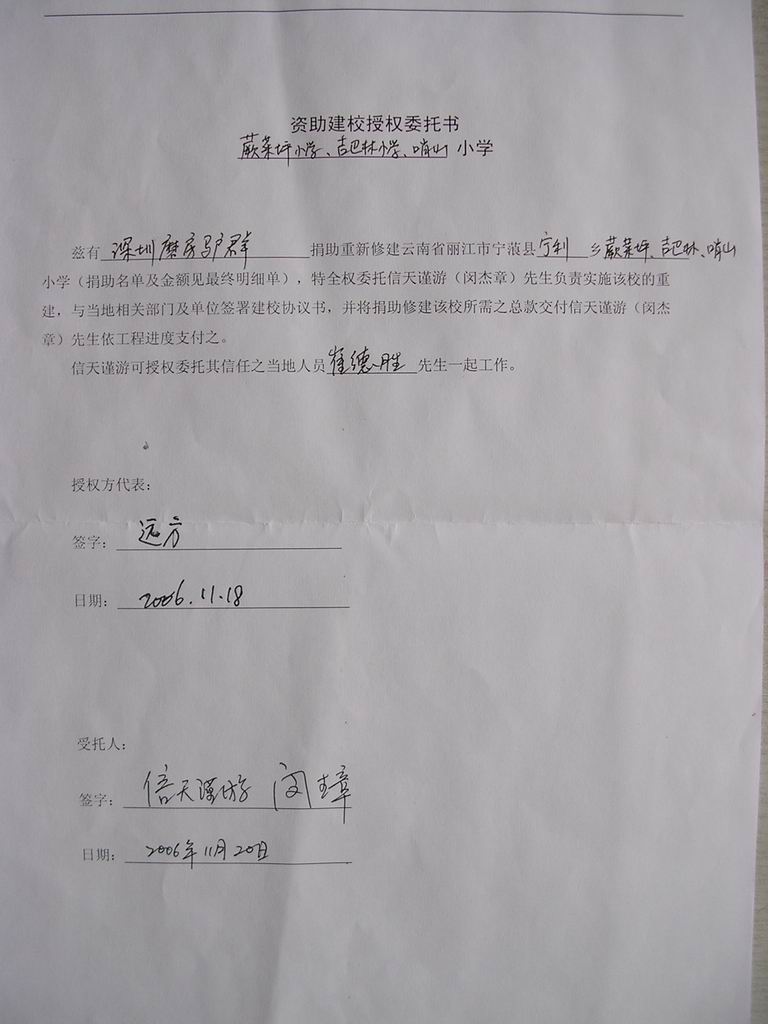 资助建校授权委托书
蕨菜坪小学、吉巴林小学、哨山 小学
兹有 深圳磨房驴群 捐助重新修建云南省丽江市宁蒗县 宁利 乡 蕨菜坪、吉巴林、哨山
小学（捐助名单及金额见最终明细单），特全权委托信天谨游（闵杰章）先生负责实施该校的重
建，与当地相关部门及单位签署建校协议书，并将捐助修建该校所需之总款交付信天谨游（闵杰
章）先生依工程进度支付之。
信天谨游可授权委托其信任之当地人员 崔德胜 先生一起工作。
授权方代表：
签字： 远方
日期： 2006.11.18
受托人：
签字： 信天谨游 闵杰章
日期： 2006年11月20日